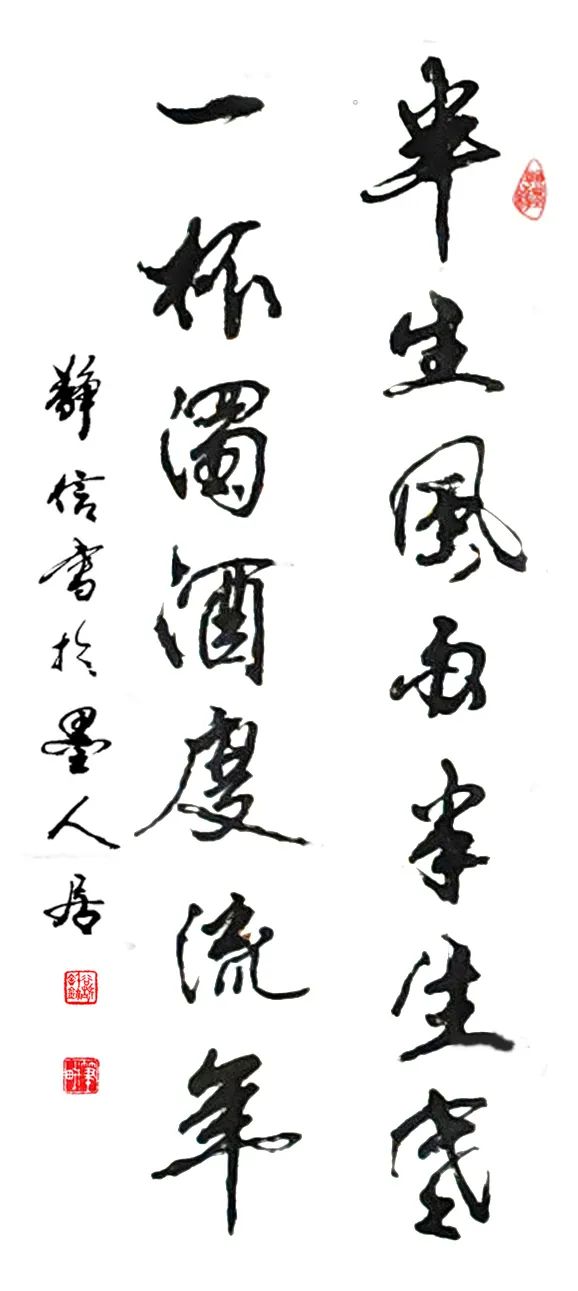 半生風雨半生寒
一杯濁酒度流年
靜信書於墨人居